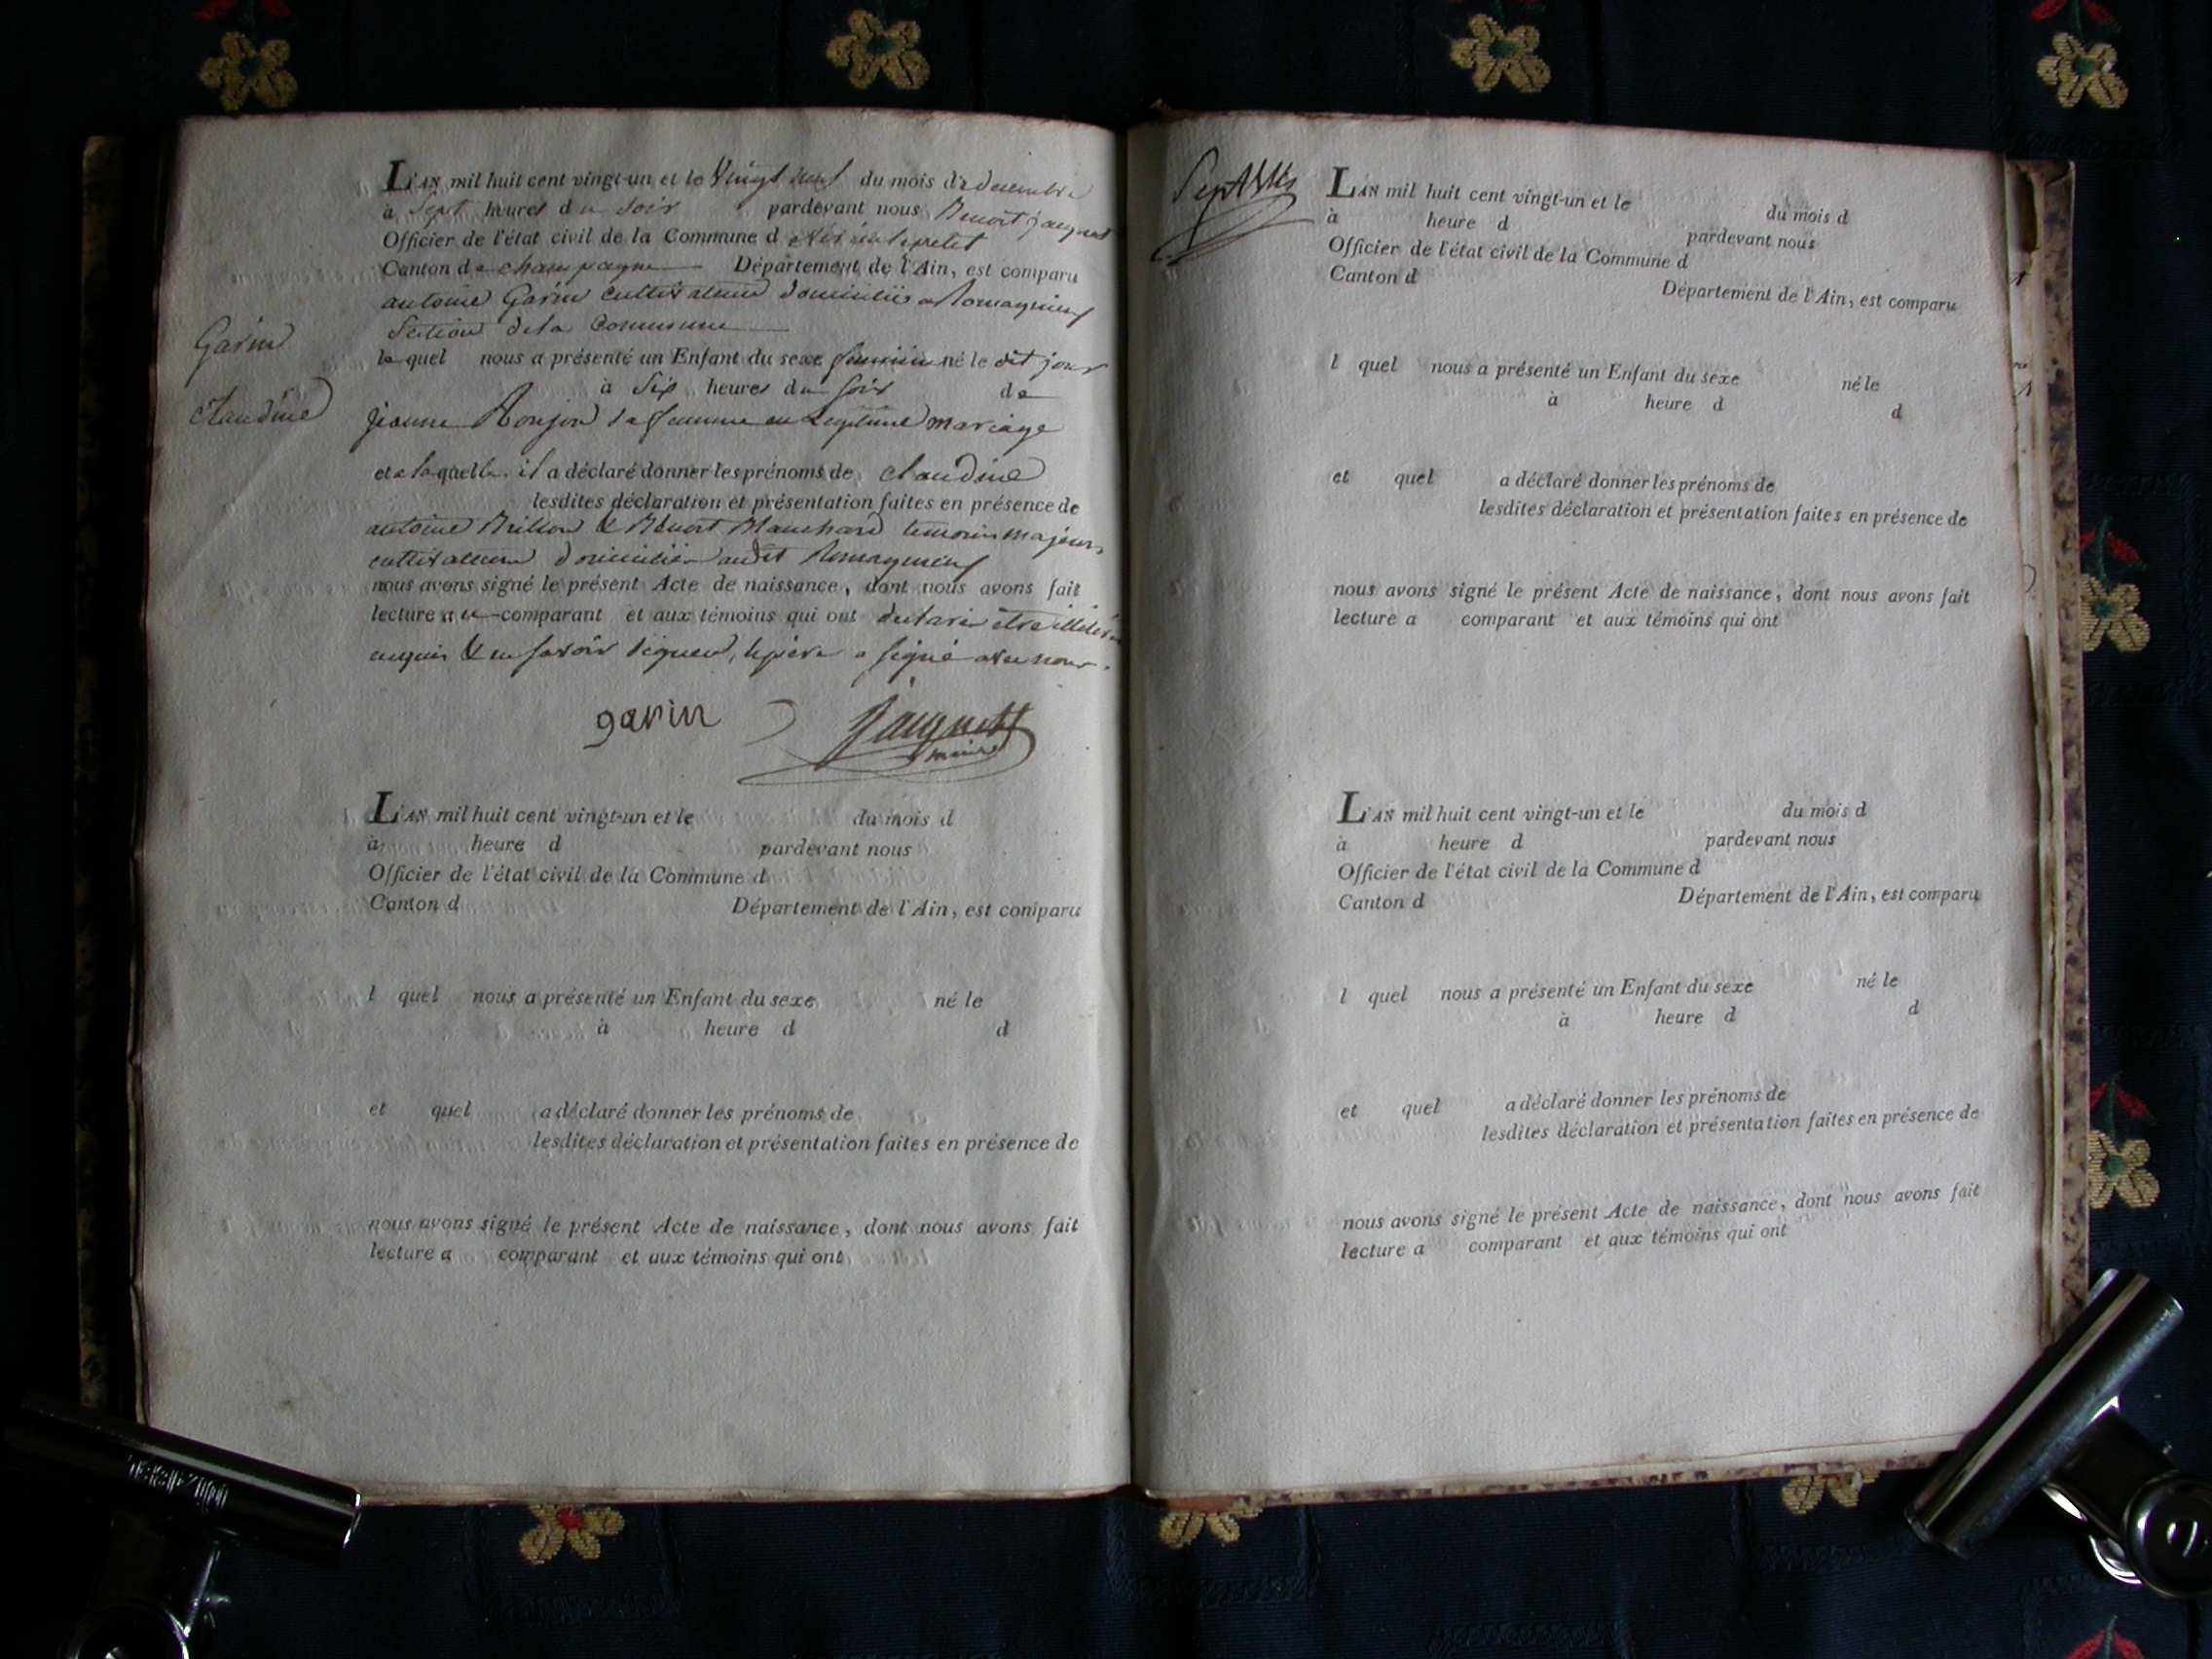 L'AN mil huit cent vingt-un et le Vingt neuf du mois de decembre
à Sept heures du Soir pardevant nous Benoit jacquet
Officier de l'état civil de la Commune d
Canton de champagne Département de l'Ain, est comparu
antoine Garin cultivateur domicilié a Romagnieu
Section de la Commune
Garin
le quel nous a présenté un Enfant du sexe feminin né le dit jour
à Six heures du Soir de
Claudine
jeanne Roujon sa femme en Legitime mariage
et a laquelle il a déclaré donner les prénoms de claudine
lesdites déclaration et présentation faites en présence de
antoine & Benoit Blanchard temoins majeurs
cultivateurs domiciliés audit Romagnieu
nous avons signé le présent Acte de naissance, dont nous avons fait
lecture au comparant et aux témoins qui ont declaré être illiteré
enquis & ne savoir signer, le père a signé avec nous.
garin Jacquet
maire
L'AN mil huit cent vingt-un et le du mois d
à heure d pardevant nous
Officier de l'état civil de la Commune d
Canton d Département de l'Ain, est comparu
l quel nous a présenté un Enfant du sexe né le
à heure d d
et quel a déclaré donner les prénoms de
lesdites déclaration et présentation faites en présence de
nous avons signé le présent Acte de naissance, dont nous avons fait
lecture a comparant et aux témoins qui ont
L'AN mil huit cent vingt-un et le du mois d
à heure d pardevant nous
Officier de l'état civil de la Commune d
Canton d Département de l'Ain, est comparu
l quel nous a présenté un Enfant du sexe né le
à heure d d
et quel a déclaré donner les prénoms de
lesdites déclaration et présentation faites en présence de
nous avons signé le présent Acte de naissance, dont nous avons fait
lecture a comparant et aux témoins qui ont
L'AN mil huit cent vingt-un et le du mois d
à heure d pardevant nous
Officier de l'état civil de la Commune d
Canton d Département de l'Ain, est comparu
l quel nous a présenté un Enfant du sexe né le
à heure d d
et quel a déclaré donner les prénoms de
lesdites déclaration et présentation faites en présence de
nous avons signé le présent Acte de naissance, dont nous avons fait
lecture a comparant et aux témoins qui ont